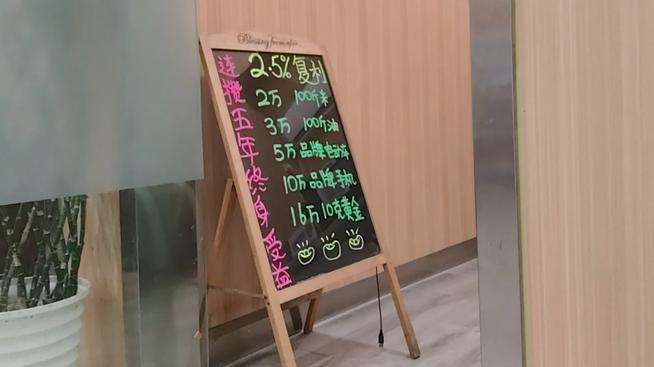 连攒五年终身受益
2.5%复利
2万 100斤米
3万 100斤油
5万品牌电动车
10万品牌手机
16万10克黄金